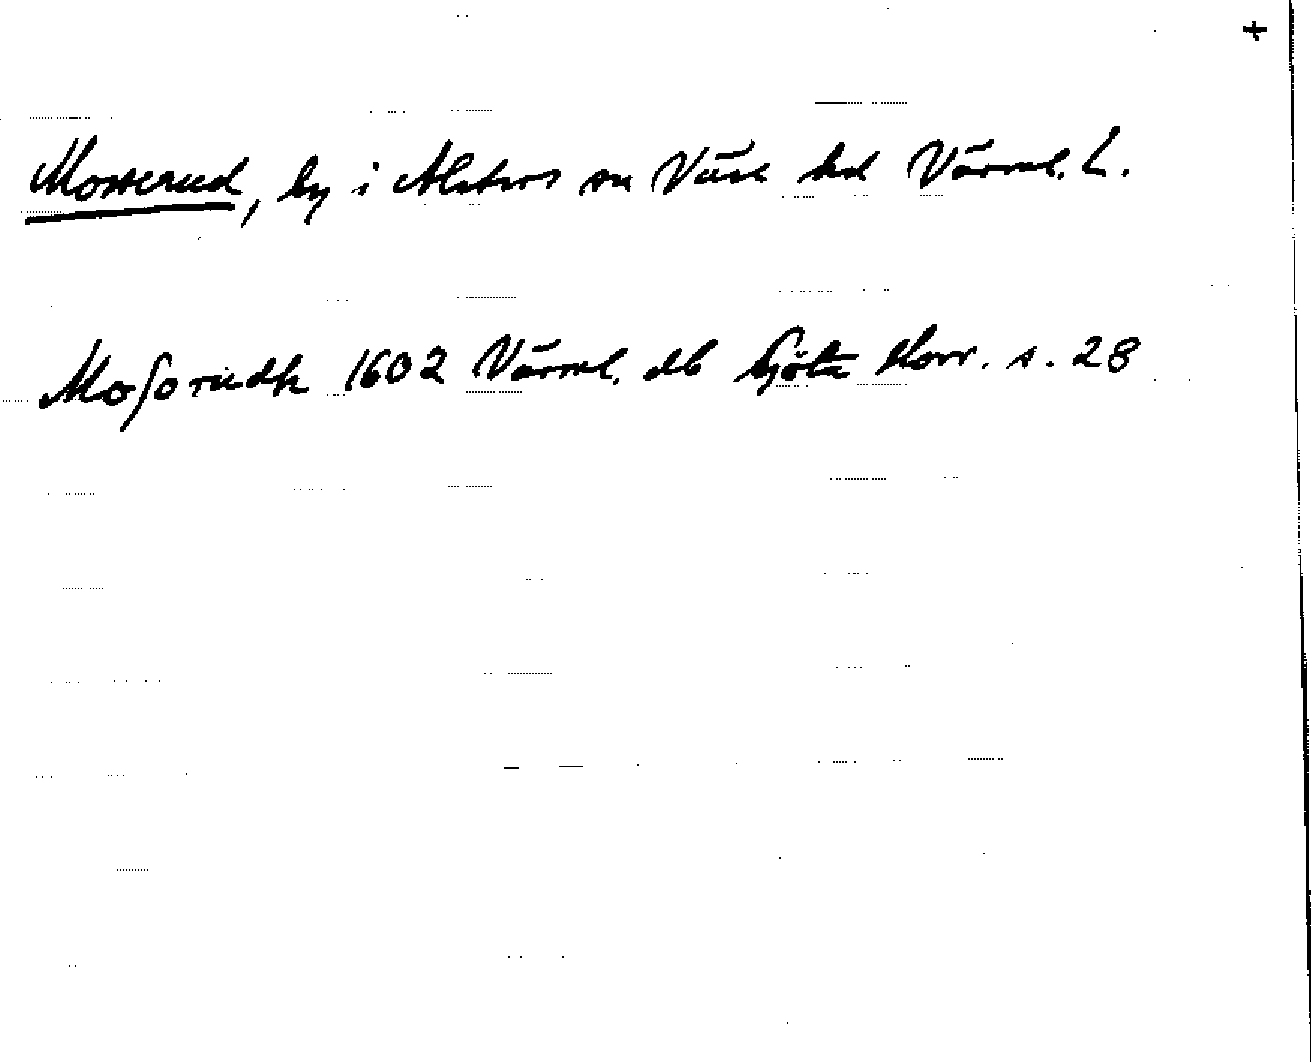 +
Mosserud, by i Alsters sn Väse hd Värml. L.
Mosorudh 1602 Värml. db Göta Hovr. s. 28